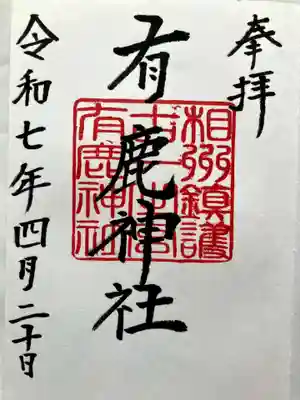 奉拝
有鹿神社
相州鎮護
十一之宮
有鹿神社
令和七年四月二十日